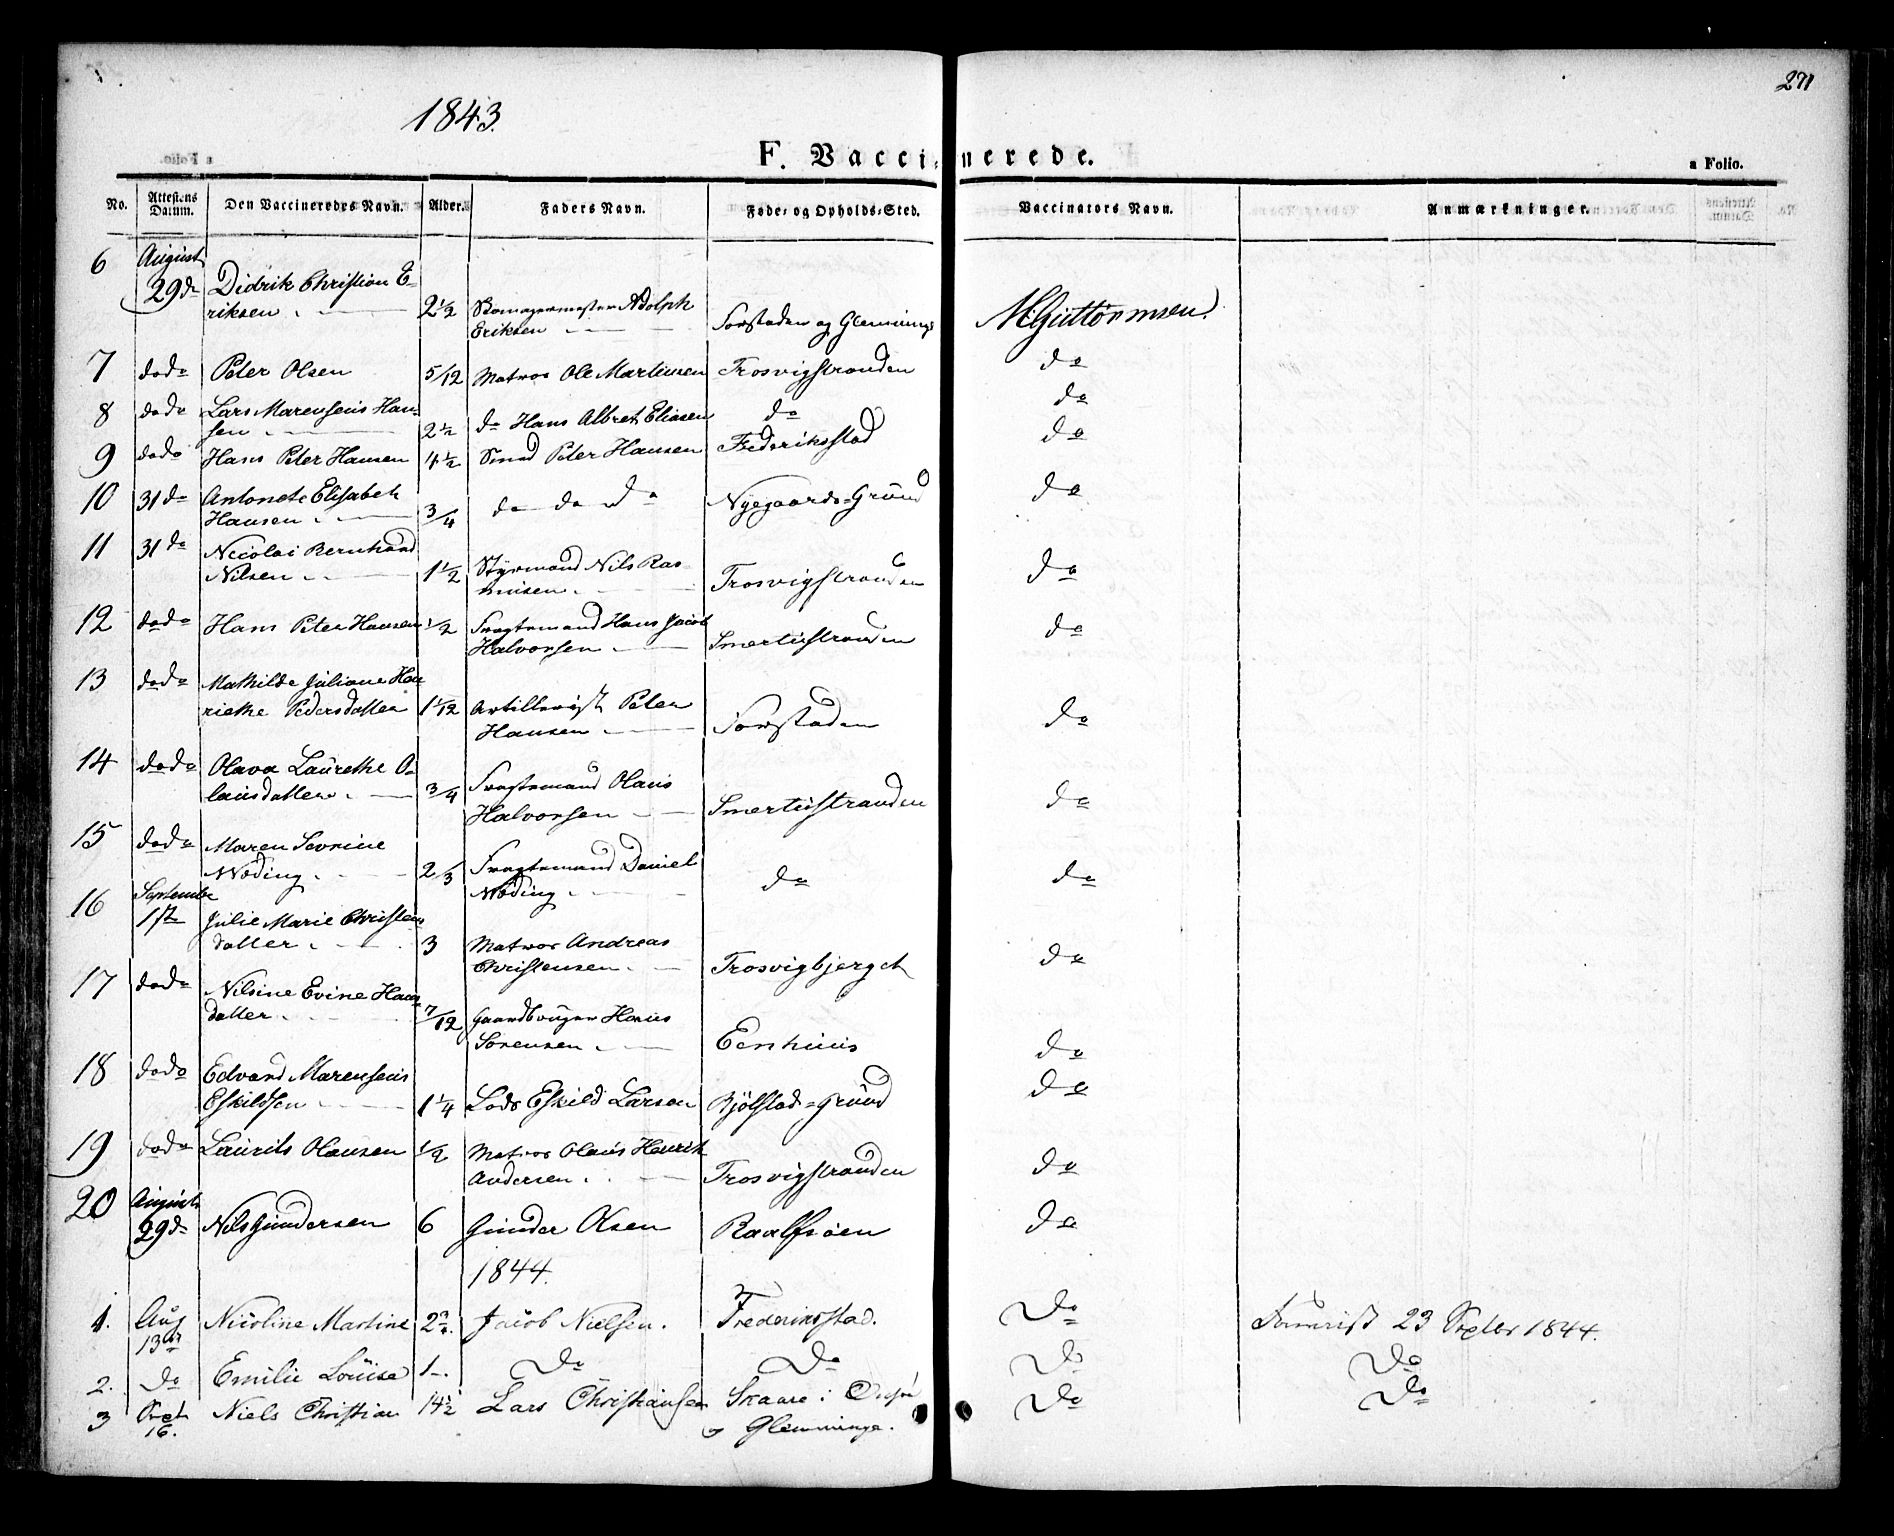 271
1843.
F. Vaccinerede.
a Folio.
No. Attestens Datum. Den Vaccineredes Navn. Alder. Faders Navn. Føde- og Opholds-Sted. Vaccinators Navn. Anmærkninger.
6 August
29de Didrik Christian E-
riksen 2 1/2 Skomagermester Adolph
Eriksen Forstaden og Glemminge MGuttormsen.
7 dodo Peter Olsen 5/12 Matros Ole Martinsen Trosvigstranden do
8 dodo Lars Marensens Han-
sen 2 1/2 do Hans Albret Eliasen do do
9 dodo Hans Peter Hansen 4 1/2 Smed Peter Hansen Frederiksstad do
10 31 do Antonete Elisabet
Hansen 3/4 do do do Nyegaards-Grund do
11 31 do Nicolai Bernhard
Nilsen 1 1/2 Styrmand Nils Ras-
musen Trosvigstranden do
12 dodo Hans Peter Hansen 1/2 Fragtemand Hans Jacob
Halvorsen Smertustranden do
13 dodo Mathilde Juliane Hen
riethe Pedersdatter 1 1/12 Artillerist Peter
Hansen Forstaden do
14 dodo Olava Laurethe O-
lausdatter 3/4 Fragtemand Olaus
Halvorsen Smertustranden do
15 dodo Maren Sevrine
Nøding 2/3 Fragtemand Daniel
Nøding do do
16 September
1ste Julie Marie Christens
datter 3 Matros Andreas
Christensen Trosvigbjerget do
17 dodo Nilsine Evine Hans-
datter 7/12 Gaardbruger Hans
Sørensen Eenhuus do
18 dodo Edvard Marensens
Eskildsen 1 1/4 Lods Eskild Larsen Bjølstad-Grund do
19 dodo Laurits Olausen 1/2 Matros Olaus Henrik
Andersen Trosvigstranden do
20 August
29de Nils Gundersen 6 Gunder Olsen Raalfsøen do
1844.
1. Aug
13de Nicoline Martine 2 Jacob Nielsen. Frederiksstad. Do 23 Septbr 1844.
2. Do Emilie Louise 1 Do Do Do Do
3 Sept
16. Niels Christian 14 1/2 Lars Christiansen Skaare i
Glemminge. Do Do